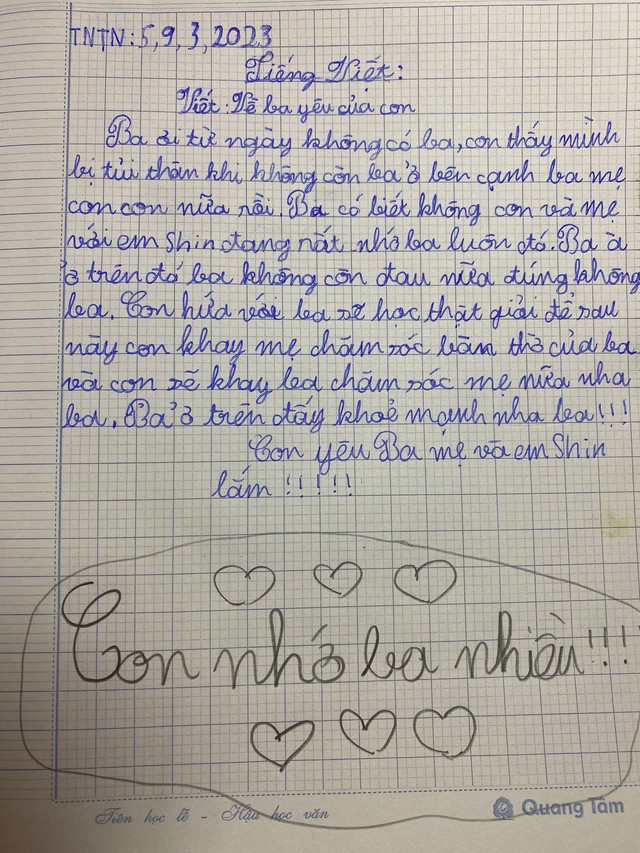 TNTN: 5, 9, 3, 2023
Tiếng Việt:
Viết: Về ba yêu của con
Ba ơi từ ngày không có ba, con thấy mình
bị tủi thân khi không còn ba ở bên cạnh ba mẹ
con con nữa rồi. Ba có biết không con và mẹ
với em Shin đang rất nhớ ba luôn đó. Ba à
ở trên đó ba không còn đau nữa đúng không
ba. Con hứa với ba sẽ học thật giỏi để sau
này con khay mẹ chăm sóc bàn thờ của ba
và con sẽ khay ba chăm sóc mẹ nữa nha
ba. Ba ở trên đấy khoẻ mạnh nha ba!!!
Con yêu Ba mẹ và em Shin
lắm !!!!!
Con nhớ ba nhiều!!!
Tiên học lễ - Hậu học văn
Quang Tâm